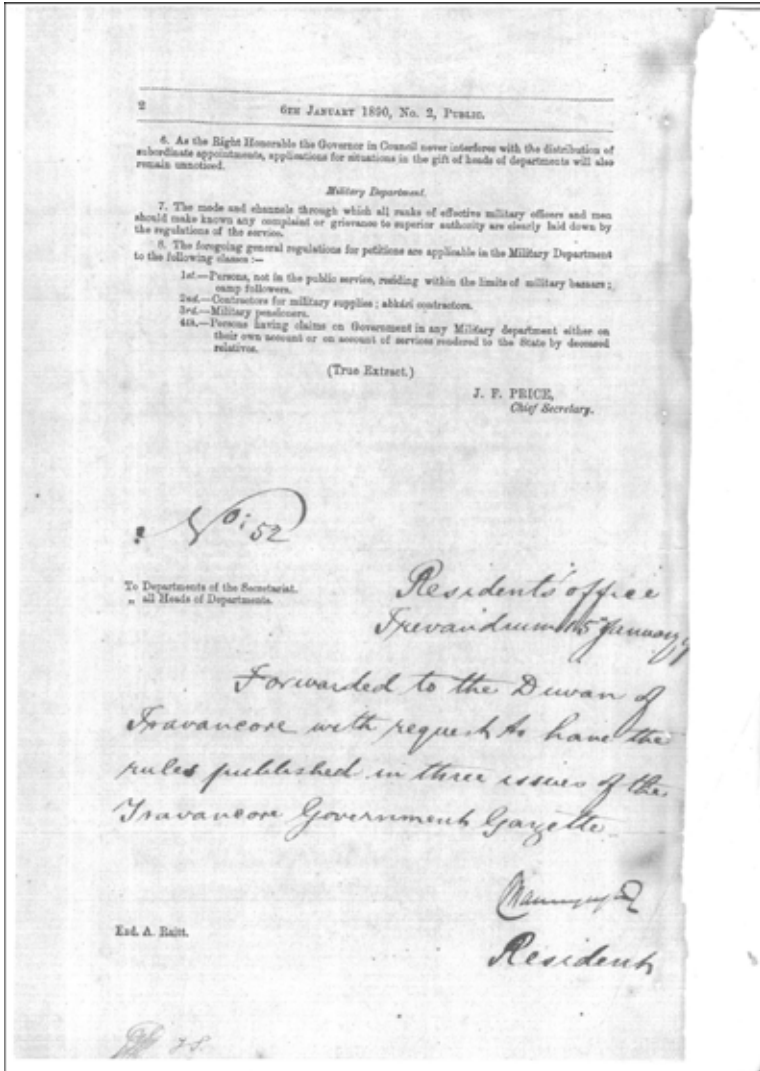 2
6TH JANUARY 1890, No. 2, PUBLIC.
6. As the Right Honorable the Governor in Council never interferes with the distribution of
subordinate appointments, applications for situations in the gift of heads of departments will also
remain unnoticed.
Military Department.
7. The mode and channels through which all ranks of effective military officers and men
should make known any complaint or grievance to superior authority are clearly laid down by
the regulations of the service.
8. The foregoing general regulations for petitions are applicable in the Military Department
to the following classes :—
1st.—Persons, not in the public service, residing within the limits of military bazaars ;
camp followers.
2nd.—Contractors for military supplies ; abkári contractors.
3rd.—Military pensioners.
4th.—Persons having claims on Government in any Military department either on
their own account or on account of services rendered to the State by deceased
relatives.
(True Extract.)
J. F. PRICE,
Chief Secretary.
No: 52
To Departments of the Secretariat.
„ all Heads of Departments.
Residents' office
Trevandrum 15 January
Forwarded to the Dewan of
Travancore with request to have the
rules published in three issues of the
Travancore Government Gazette
Resident
Exd. A. Raitt.
28